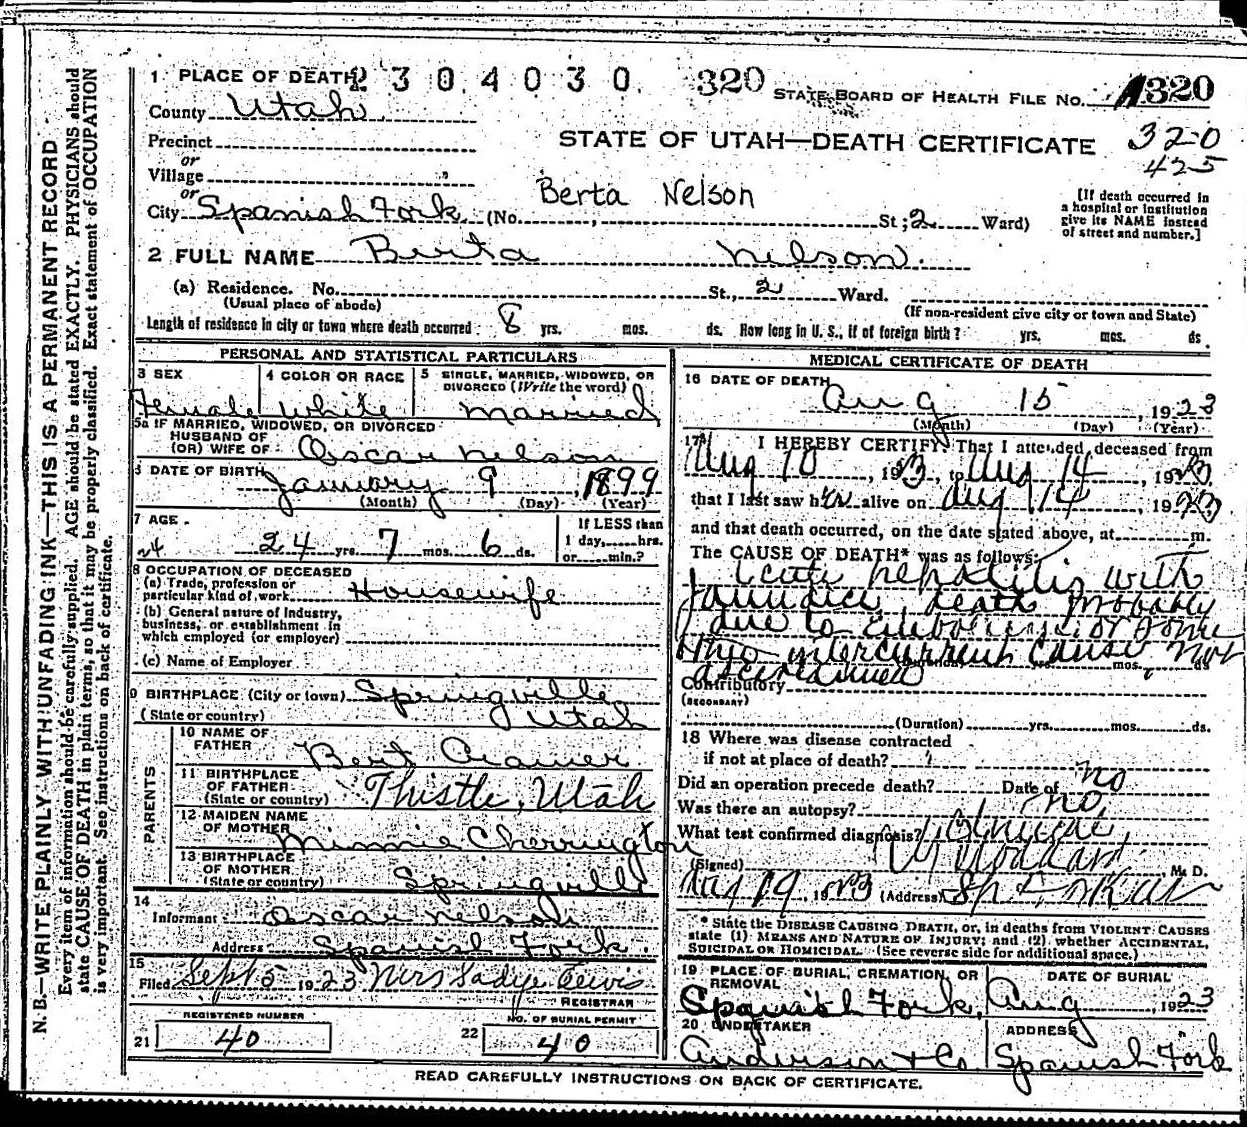 1 PLACE OF DEATH 2 3 0 4 0 3 0. 320 STATE BOARD OF HEALTH FILE No. A320
County Utah
320
425
STATE OF UTAH—DEATH CERTIFICATE
Precinct
or
Village
or
City Spanish Fork (No. Berta Nelson, St; 2 Ward)
[If death occurred in a hospital or institution give its NAME instead of street and number.]
2 FULL NAME Berta Nelson.
(a) Residence. No. St., 2 Ward.
(Usual place of abode) (If non-resident give city or town and State)
Length of residence in city or town where death occurred 8 yrs. mos. ds. How long in U. S., if of foreign birth? yrs. mos. ds.
PERSONAL AND STATISTICAL PARTICULARS
3 SEX Female
4 COLOR OR RACE White
5 SINGLE, MARRIED, WIDOWED, OR DIVORCED (Write the word) Married
5a IF MARRIED, WIDOWED, OR DIVORCED
HUSBAND OF
(OR) WIFE OF Oscar Nelson
DATE OF BIRTH January 9, 1899
(Month) (Day) (Year)
7 AGE
24 24 yrs. 7 mos. 6 ds.
If LESS than 1 day, hrs. or min.?
8 OCCUPATION OF DECEASED
(a) Trade, profession or particular kind of work Housewife
(b) General nature of Industry, business, or establishment in which employed (or employer)
(c) Name of Employer
9 BIRTHPLACE (City or town) Springville
(State or country) Utah
PARENTS
10 NAME OF FATHER Bert Cramer.
11 BIRTHPLACE OF FATHER (State or country) Thistle, Utah
12 MAIDEN NAME OF MOTHER Minnie Cherrington
13 BIRTHPLACE OF MOTHER (State or country) Springville
14
Informant Oscar Nelson
Address Spanish Fork.
15
Filed Sept 5 1923 Mrs Sadye Lewis
REGISTRAR
REGISTERED NUMBER
21 40
NO. OF BURIAL PERMIT
22 40
MEDICAL CERTIFICATE OF DEATH
16 DATE OF DEATH
Aug 15, 1923
(Month) (Day) (Year)
17 I HEREBY CERTIFY, That I attended deceased from
Aug 10, 1923, to Aug 14, 1923
that I last saw her alive on Aug 14, 1923
and that death occurred, on the date stated above, at m.
The CAUSE OF DEATH* was as follows:
Acute hepatitis with
Jaundice, death probably
due to Embolism or some
other intercurrent cause not
ascertained
mos. ds
Contributory
(SECONDARY)
(Duration) yrs. mos. ds.
18 Where was disease contracted
if not at place of death? ?
Did an operation precede death? Date of no
Was there an autopsy? no,
What test confirmed diagnosis? Clinical,
(Signed) Stoddard M. D.
Aug 19, 1923 (Address) Sp Fork
* State the DISEASE CAUSING DEATH, or, in deaths from VIOLENT CAUSES
state (1) MEANS AND NATURE OF INJURY; and (2) whether ACCIDENTAL,
SUICIDAL OR HOMICIDAL. (See reverse side for additional space.)
19 PLACE OF BURIAL, CREMATION, OR REMOVAL Spanish Fork,
DATE OF BURIAL Aug, 1923
20 UNDERTAKER Anderson & Co.
ADDRESS Spanish Fork
READ CAREFULLY INSTRUCTIONS ON BACK OF CERTIFICATE.
N. B.—WRITE PLAINLY WITH UNFADING INK—THIS IS A PERMANENT RECORD
Every item of information should be carefully supplied. AGE should be stated EXACTLY. PHYSICIANS should
state CAUSE OF DEATH in plain terms, so that it may be properly classified. Exact statement of OCCUPATION
is very important. See instructions on back of certificate.